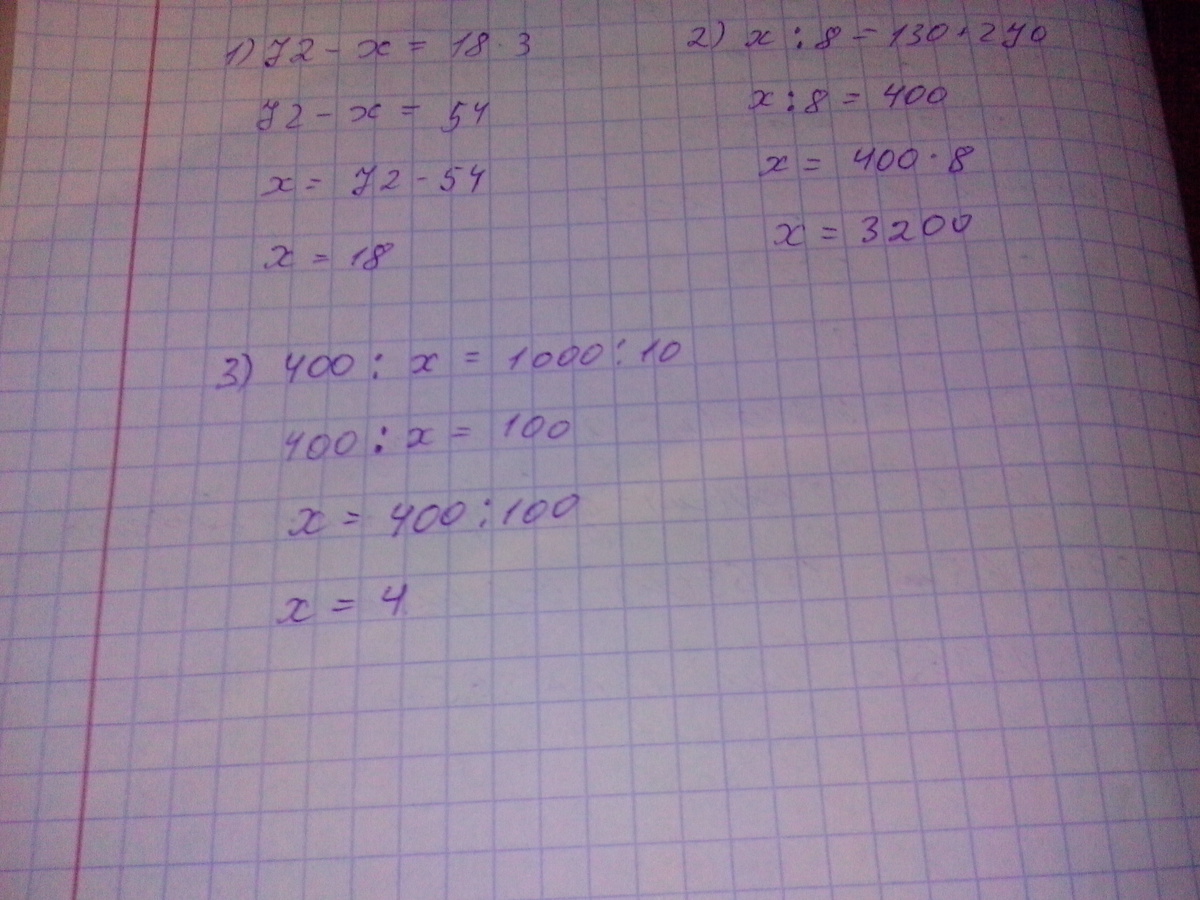 1) 72 - x = 18 · 3
72 - x = 54
x = 72 - 54
x = 18
2) x : 8 = 130 + 270
x : 8 = 400
x = 400 · 8
x = 3200
3) 400 : x = 1000 : 10
400 : x = 100
x = 400 : 100
x = 4